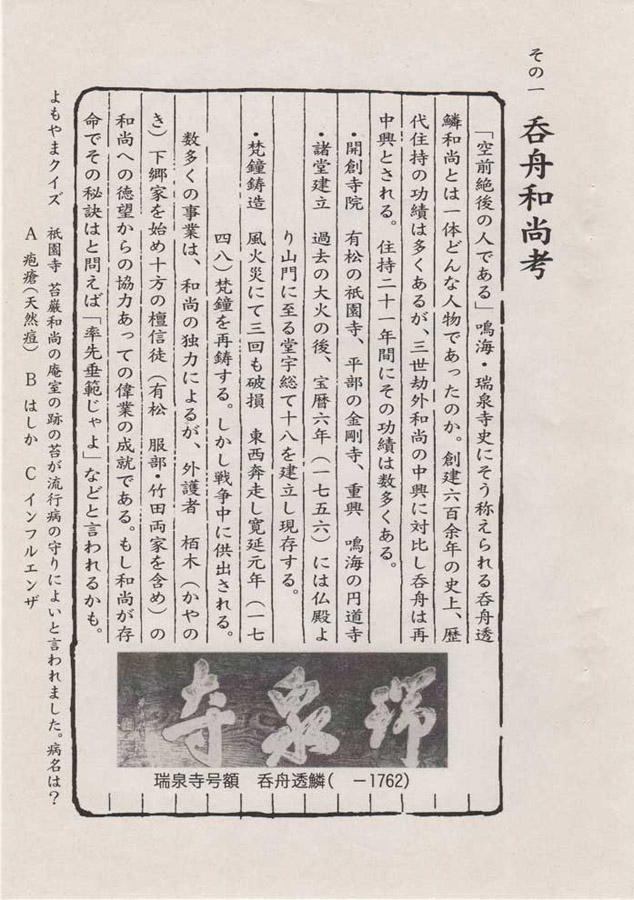 その一 呑舟和尚考
「空前絶後の人である」鳴海・瑞泉寺史にそう称えられる呑舟透
鱗和尚とは一体どんな人物であったのか。創建六百余年の史上、歴
代住持の功績は多くあるが、三世劫外和尚の中興に対比し呑舟は再
中興とされる。住持二十一年間にその功績は数多くある。
・開創寺院 有松の祇園寺、平部の金剛寺、重興 鳴海の円道寺
・諸堂建立 過去の大火の後、宝暦六年（一七五六）には仏殿よ
り山門に至る堂宇総て十八を建立し現存する。
・梵鐘鋳造 風火災にて三回も破損 東西奔走し寛延元年（一七
四八）梵鐘を再鋳する。しかし戦争中に供出される。
数多くの事業は、和尚の独力によるが、外護者 栢木（かやの
き）下郷家を始め十方の檀信徒（有松 服部・竹田両家を含め）の
和尚への徳望からの協力あっての偉業の成就である。もし和尚が存
命でその秘訣はと問えば「率先垂範じゃよ」などと言われるかも。
瑞泉寺
瑞泉寺号額 呑舟透鱗( －1762)
よもやまクイズ 祇園寺 苔厳和尚の庵室の跡の苔が流行病の守りによいと言われました。病名は？
A 疱瘡（天然痘） B はしか C インフルエンザ